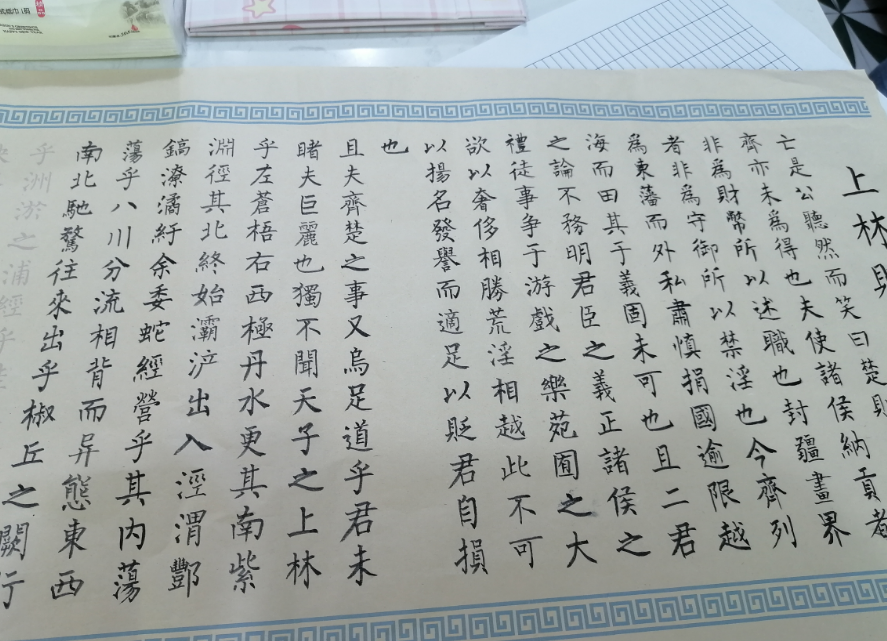 上林
亡是公聽然而笑曰楚則
齊亦未為得也夫使諸侯納貢者
非為財幣所以述職也封疆畫界
者非為守御所以禁淫也今齊列
為東藩而外私肅慎捐國逾限越
海而田其于義固未可也且二君
之論不務明君臣之義正諸侯之
禮徒事争于游戲之樂苑囿之大
欲以奢侈相勝荒淫相越此不可
以揚名發譽而適足以貶君自損
也
且夫齊楚之事又烏足道乎君未
睹夫巨麗也獨不聞天子之上林
乎左蒼梧右西極丹水更其南紫
淵徑其北終始灞浐出入涇渭酆
鎬潦潏紆余委蛇經營乎其内蕩
蕩乎八川分流相背而异態東西
南北馳騖往來出乎椒丘之闕行
乎洲淤之浦經乎